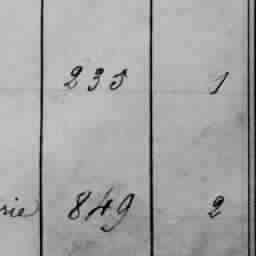 235 1
rie 849 2